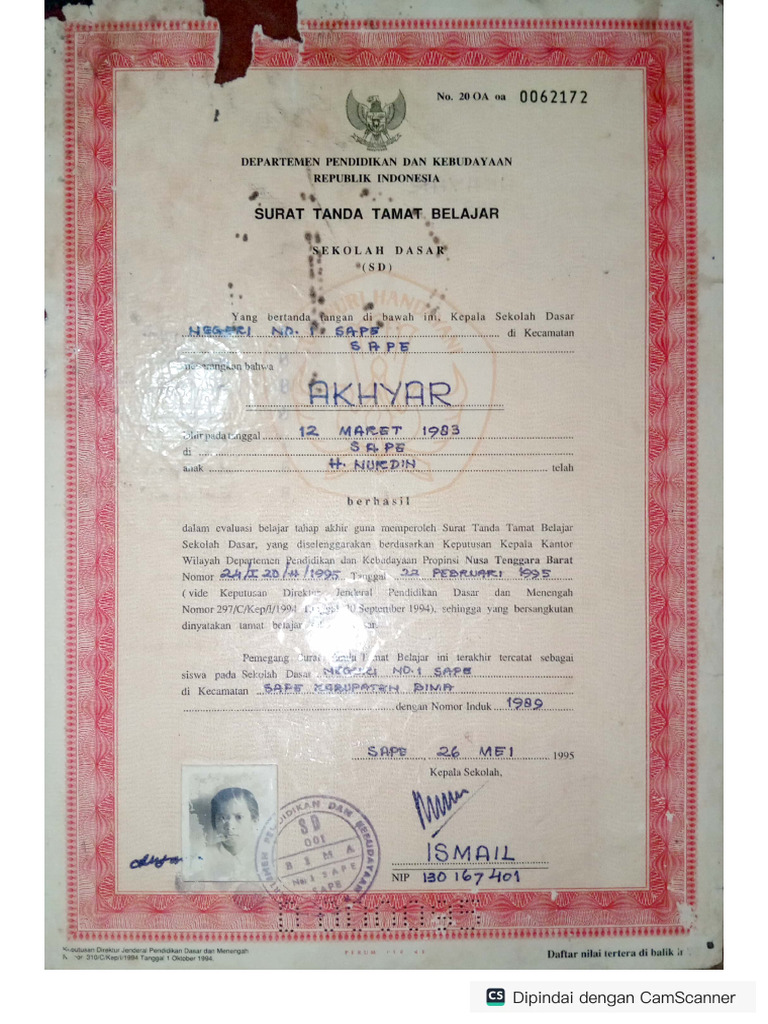 No. 20 OA oa 0062172
DEPARTEMEN PENDIDIKAN DAN KEBUDAYAAN
REPUBLIK INDONESIA
SURAT TANDA TAMAT BELAJAR
SEKOLAH DASAR
(SD)
Yang bertanda tangan di bawah ini, Kepala Sekolah Dasar
NEGERI NO. 1 SAPE di Kecamatan
SAPE
menerangkan bahwa
AKHYAR
lahir pada tanggal 12 MARET 1983
di SAPE
anak H. NURDIN telah
berhasil
dalam evaluasi belajar tahap akhir guna memperoleh Surat Tanda Tamat Belajar
Sekolah Dasar, yang diselenggarakan berdasarkan Keputusan Kepala Kantor
Wilayah Departemen Pendidikan dan Kebudayaan Propinsi Nusa Tenggara Barat
Nomor 24/I20/H/1995 Tanggal 22 PEBRUARI 1995
( vide Keputusan Direktur Jenderal Pendidikan Dasar dan Menengah
Nomor 297/C/Kep/I/1994 Tanggal 30 September 1994), sehingga yang bersangkutan
dinyatakan tamat belajar
Pemegang Surat Tanda Tamat Belajar ini terakhir tercatat sebagai
siswa pada Sekolah Dasar NEGERI NO.1 SAPE
di Kecamatan SAPE KABUPATEN BIMA
dengan Nomor Induk 1989
SAPE 26 MEI 1995
Kepala Sekolah,
SD
001
BIMA
No 1 SAPE
SAPE
ISMAIL
NIP 130 167 401
Keputusan Direktur Jenderal Pendidikan Dasar dan Menengah
310/C/Kep/I/1994 Tanggal 1 Oktober 1994.
PERUM
Daftar nilai tertera di balik
CS Dipindai dengan CamScanner